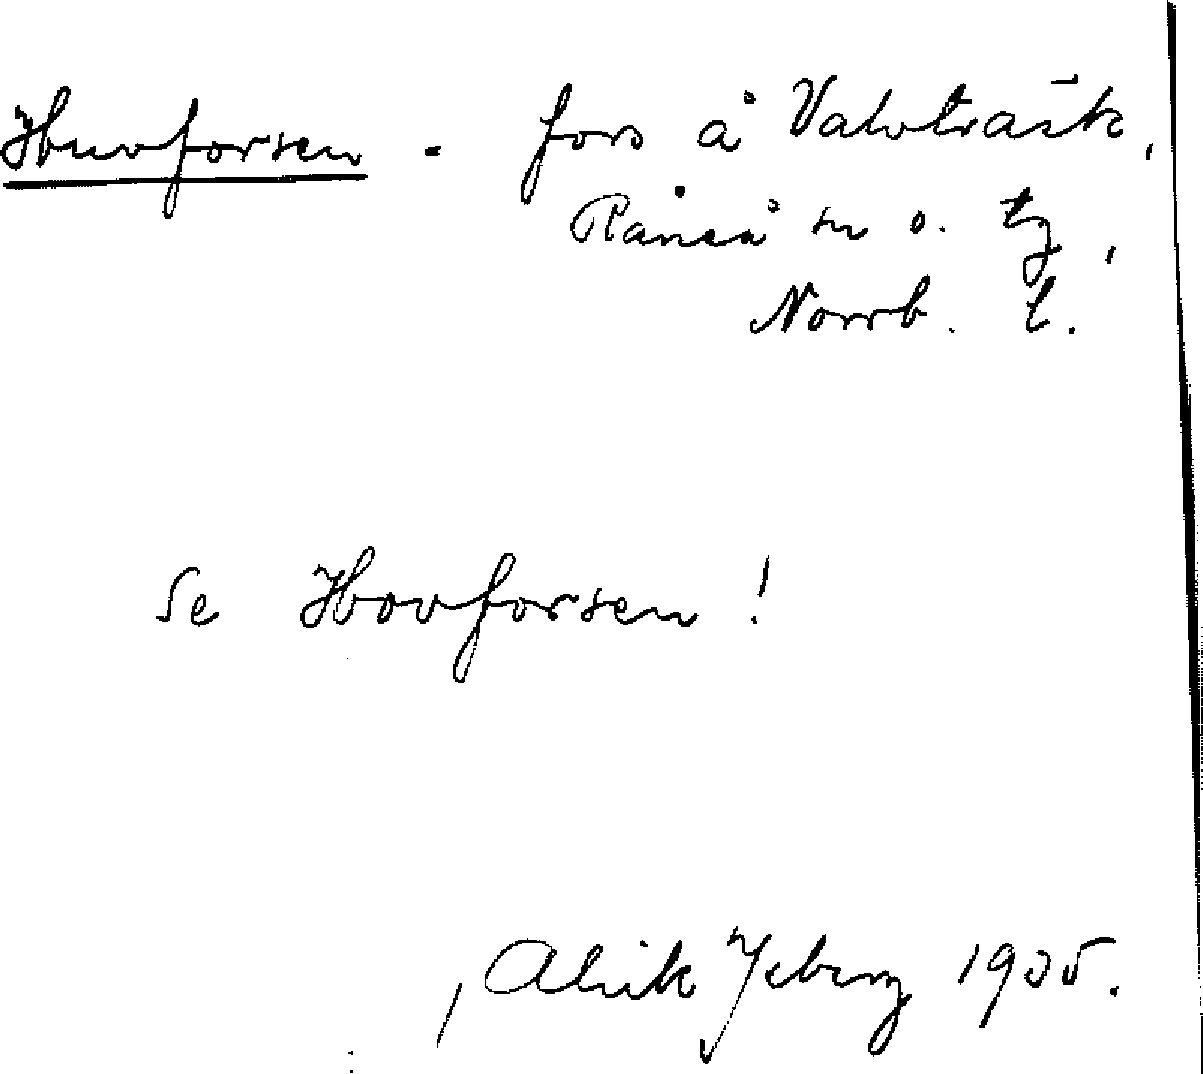 Huvforsen - fors å Valvträsk,
Råneå sn o. tg,
Norrb. l.
Se Hovforsen!
Alrik Ysberg 1935.